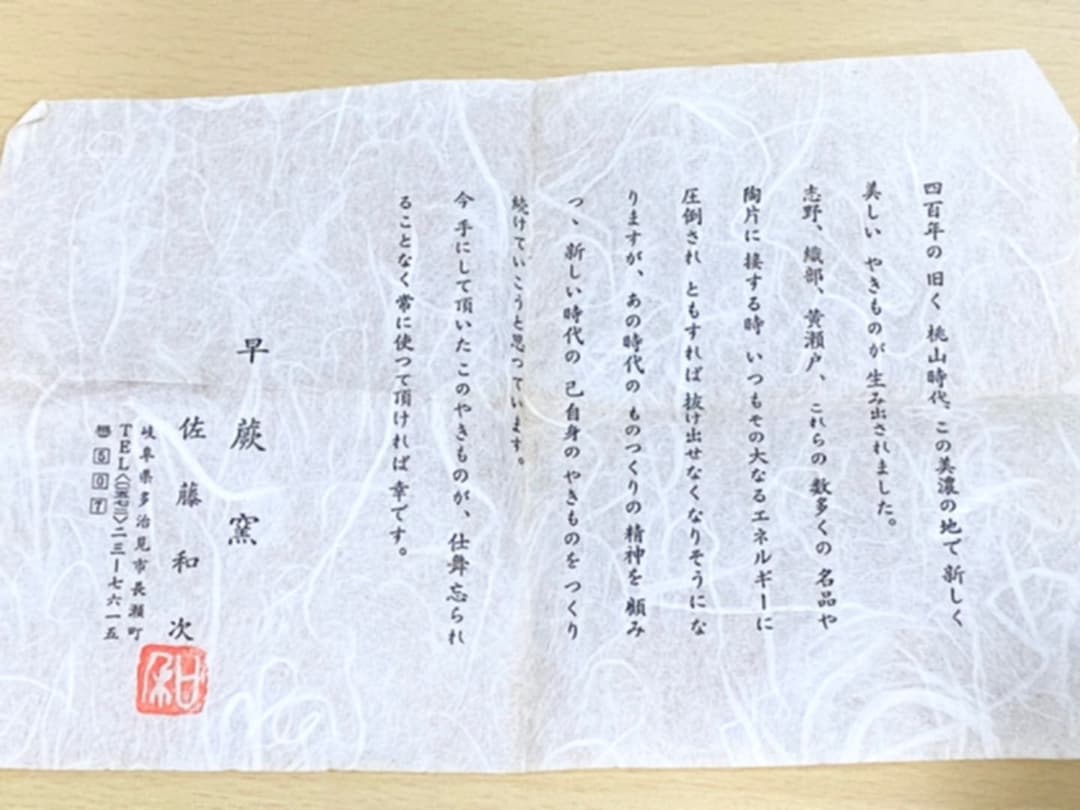 四百年の旧く 桃山時代、この美濃の地で新しく
美しい やきものが 生み出されました。
志野、織部、黄瀬戸、これらの 数多くの 名品や
陶片に 接する時 いつもその大なるエネルギーに
圧倒され ともすれば 抜け出せなくなりそうにな
りますが、あの時代の ものつくりの 精神を 顧み
つ、新しい時代の 己自身の やきものを つくり
続けていこうと思つています。
今 手にして頂いた このやきものが、仕舞忘られ
ることなく 常に使つて頂ければ 幸です。
早蕨窯
佐藤和次
岐阜県多治見市長瀬町
TEL〈〇五七二〉二三ー七六一五
〠507